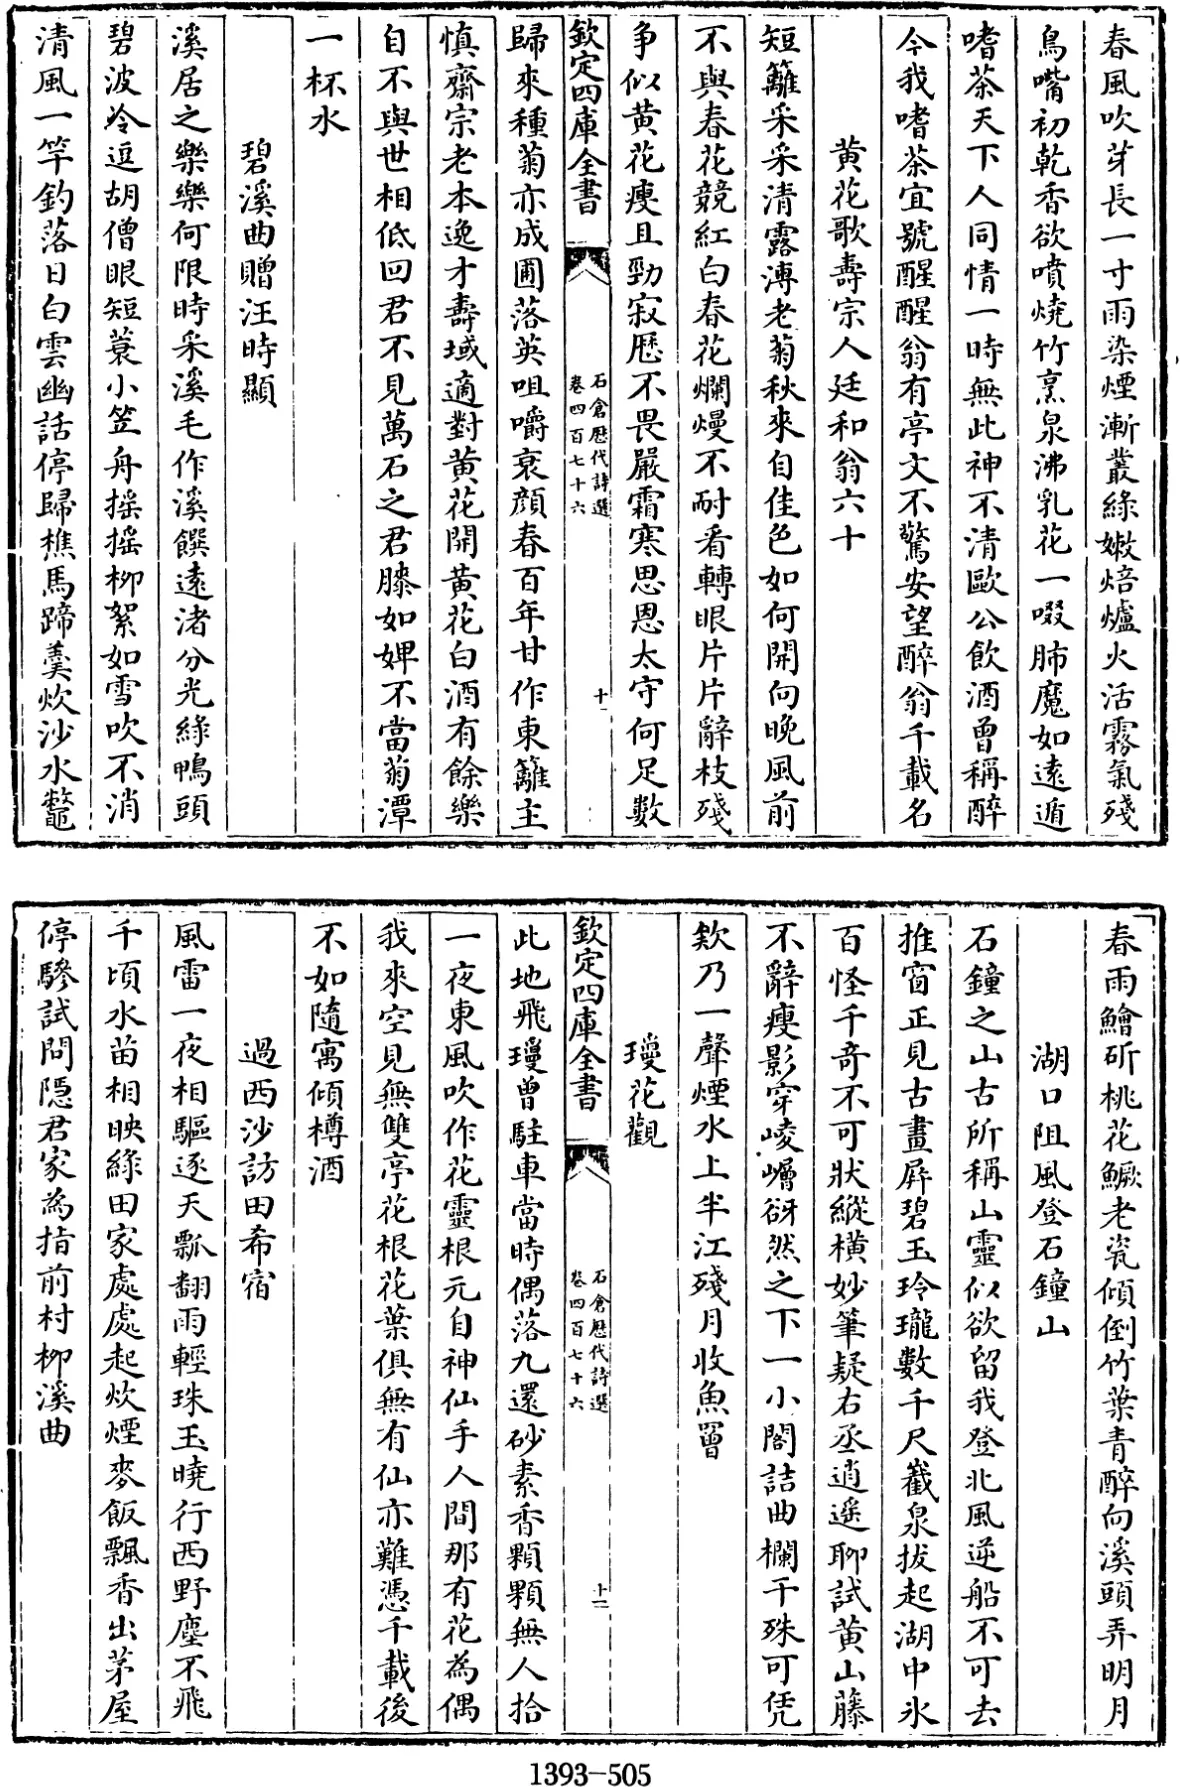 春風吹芽長一寸雨染煙漸叢綠嫩焙爐火活霧氣殘
鳥嘴初乾香欲噴燒竹烹泉沸乳花一啜肺魔如遠遁
嗜茶天下人同情一時無此神不清歐公飲酒曾稱醉
今我嗜茶宜號醒醒翁有亭文不驚安望醉翁千載名
黃花歌壽宗人廷和翁六十
短籬采采清露漙老菊秋來自佳色如何開向晚風前
不與春花競紅白春花爛熳不耐看轉眼片片辭枝殘
争似黃花瘦且勁寂歷不畏嚴霜寒思恩太守何足數
欽定四庫全書
石倉歷代詩選
卷四百七十六
十一
歸來種菊亦成圃落英咀嚼衰顔春百年甘作東籬主
慎齋宗老本逸才壽域適對黃花開黃花白酒有餘樂
自不與世相低回君不見萬石之君膝如婢不當菊潭
一杯水
碧溪曲贈汪時顯
溪居之樂樂何限時采溪毛作溪饌遠渚分光綠鴨頭
碧波冷逗胡僧眼短蓑小笠舟摇摇柳絮如雪吹不消
清風一竿釣落日白雲幽話停歸樵馬蹄羹炊沙水鼈
春雨鱠斫桃花鱖老瓷傾倒竹葉青醉向溪頭弄明月
湖口阻風登石鐘山
石鐘之山古所稱山靈似欲留我登北風逆船不可去
推窗正見古畫屏碧玉玲瓏數千尺巀泉拔起湖中氷
百怪千竒不可狀縱橫妙筆疑右丞逍遥聊試黃山藤
不辭瘦影穿崚嶒谺然之下一小閣詰曲欄干殊可凭
欸乃一聲煙水上半江殘月收魚罾
瓊花觀
欽定四庫全書
石倉歷代詩選
卷四百七十六
十二
此地飛瓊曾駐車當時偶落九還砂素香顆顆無人拾
一夜東風吹作花靈根元自神仙手人間那有花為偶
我來空見無雙亭花根花葉俱無有仙亦難憑千載後
不如隨寓傾樽酒
過西沙訪田希宿
風雷一夜相驅逐天瓢翻雨輕珠玉曉行西野塵不飛
千頃水苗相映綠田家處處起炊煙麥飯飄香出茅屋
停驂試問隠君家為指前村柳溪曲
1393-505